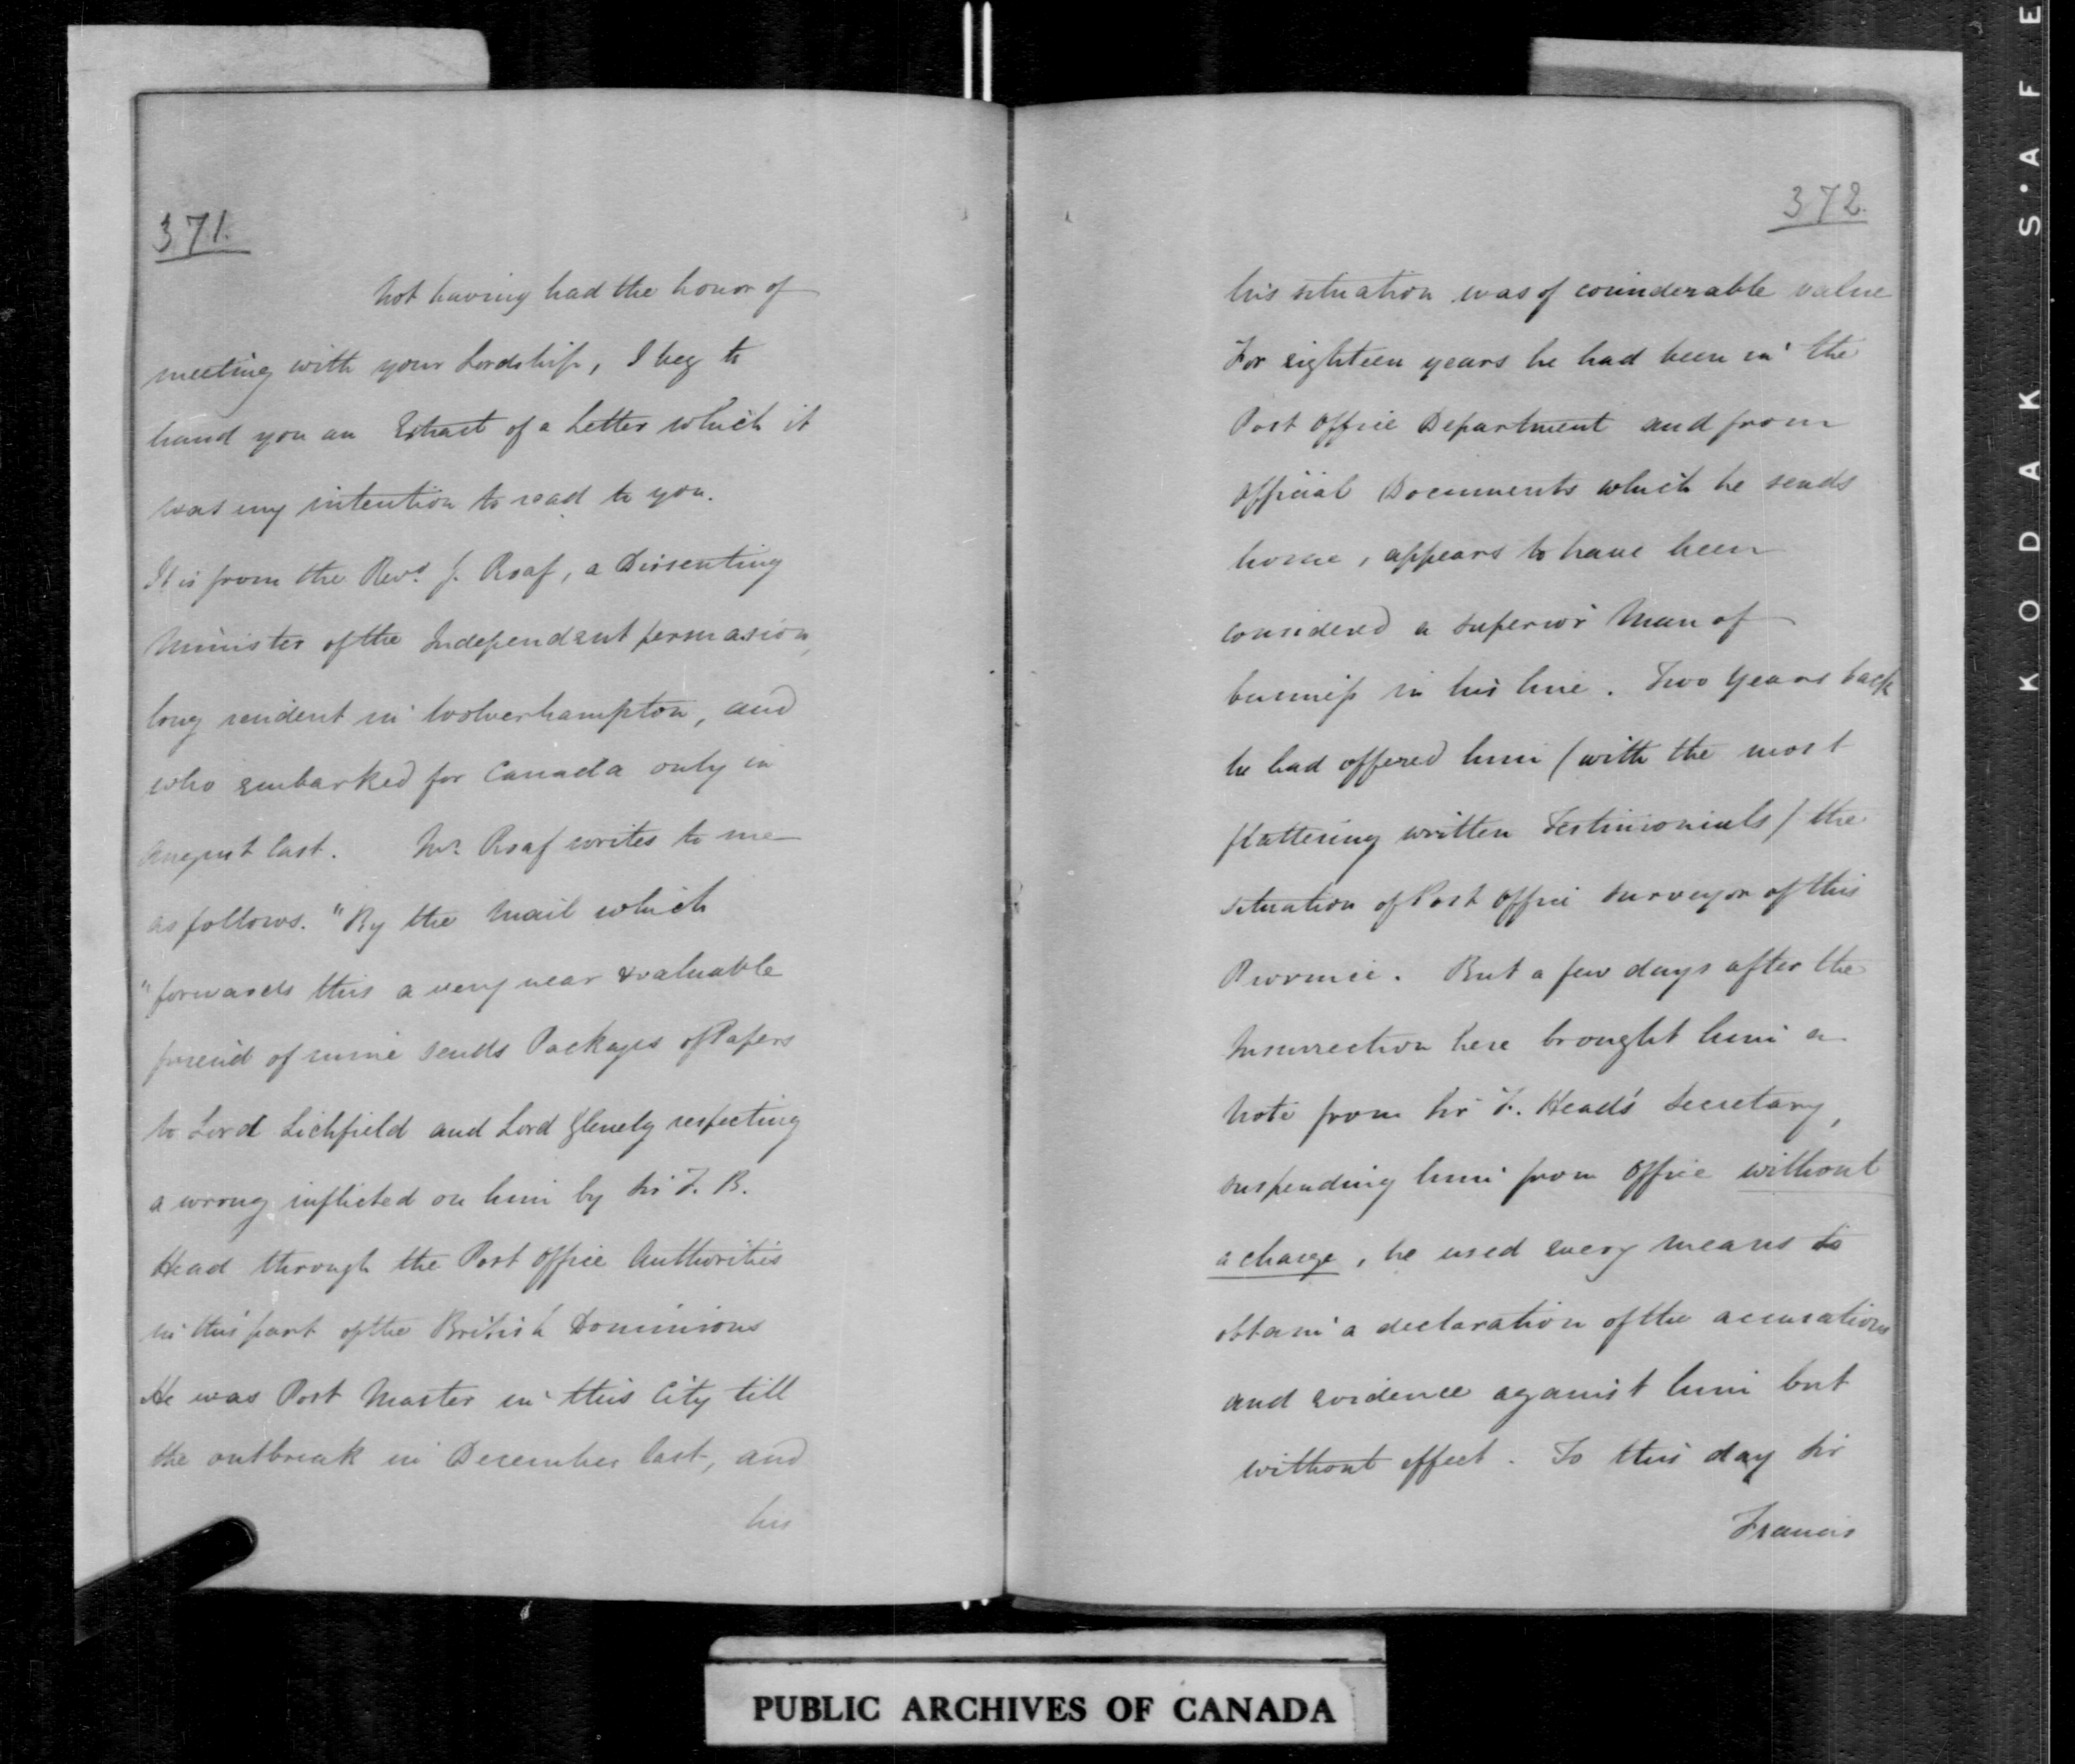 371.
Not having had the honor of
meeting with your Lordship, I beg to
hand you an Extract of a Letter which it
was my intention to read to you.
It is from the Revd. J. Roaf, a Dissenting
Minister of the Independent persuasion,
long resident in Wolverhampton, and
who embarked for Canada only in
August last. Mr. Roaf writes to me
as follows. "By the Mail which
"forwards this a very near & valuable
friend of mine sends Packages of Papers
to Lord Lichfield and Lord Glenelg respecting
a wrong inflicted on him by Sir F. B.
Head through the Post Office Authorities
in this part of the British Dominions
He was Post Master in this City till
the outbreak in December last, and
his
372.
his situation was of considerable value
For eighteen years he had been in the
Post Office Department and from
Official Documents which he sends
home, appears to have been
considered a superior Man of
business in his line. Two Years back
he had offered him (with the most
flattering written Testimonials) the
situation of Post Office Surveyor of this
Province. But a few days after the
Insurrection here brought him a
Note from Sir F. Head's Secretary,
suspending him from Office without
a charge, he used every means to
obtain a declaration of the accusations
and evidence against him but
without effect. To this day Sir
Francis
PUBLIC ARCHIVES OF CANADA
KODAK S·AFE